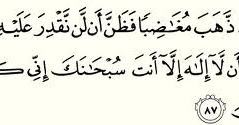 ذَّهَبَ مُغَٰضِبًا فَظَنَّ أَن لَّن نَّقْدِرَ عَلَيْهِ
أَن لَّآ إِلَٰهَ إِلَّآ أَنتَ سُبْحَٰنَكَ إِنِّي كُ
٨٧